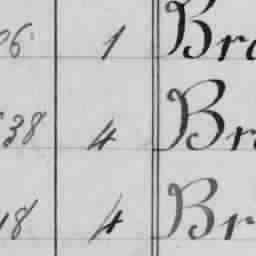 06 1 Bro
38 4 Bro
18 4 Br